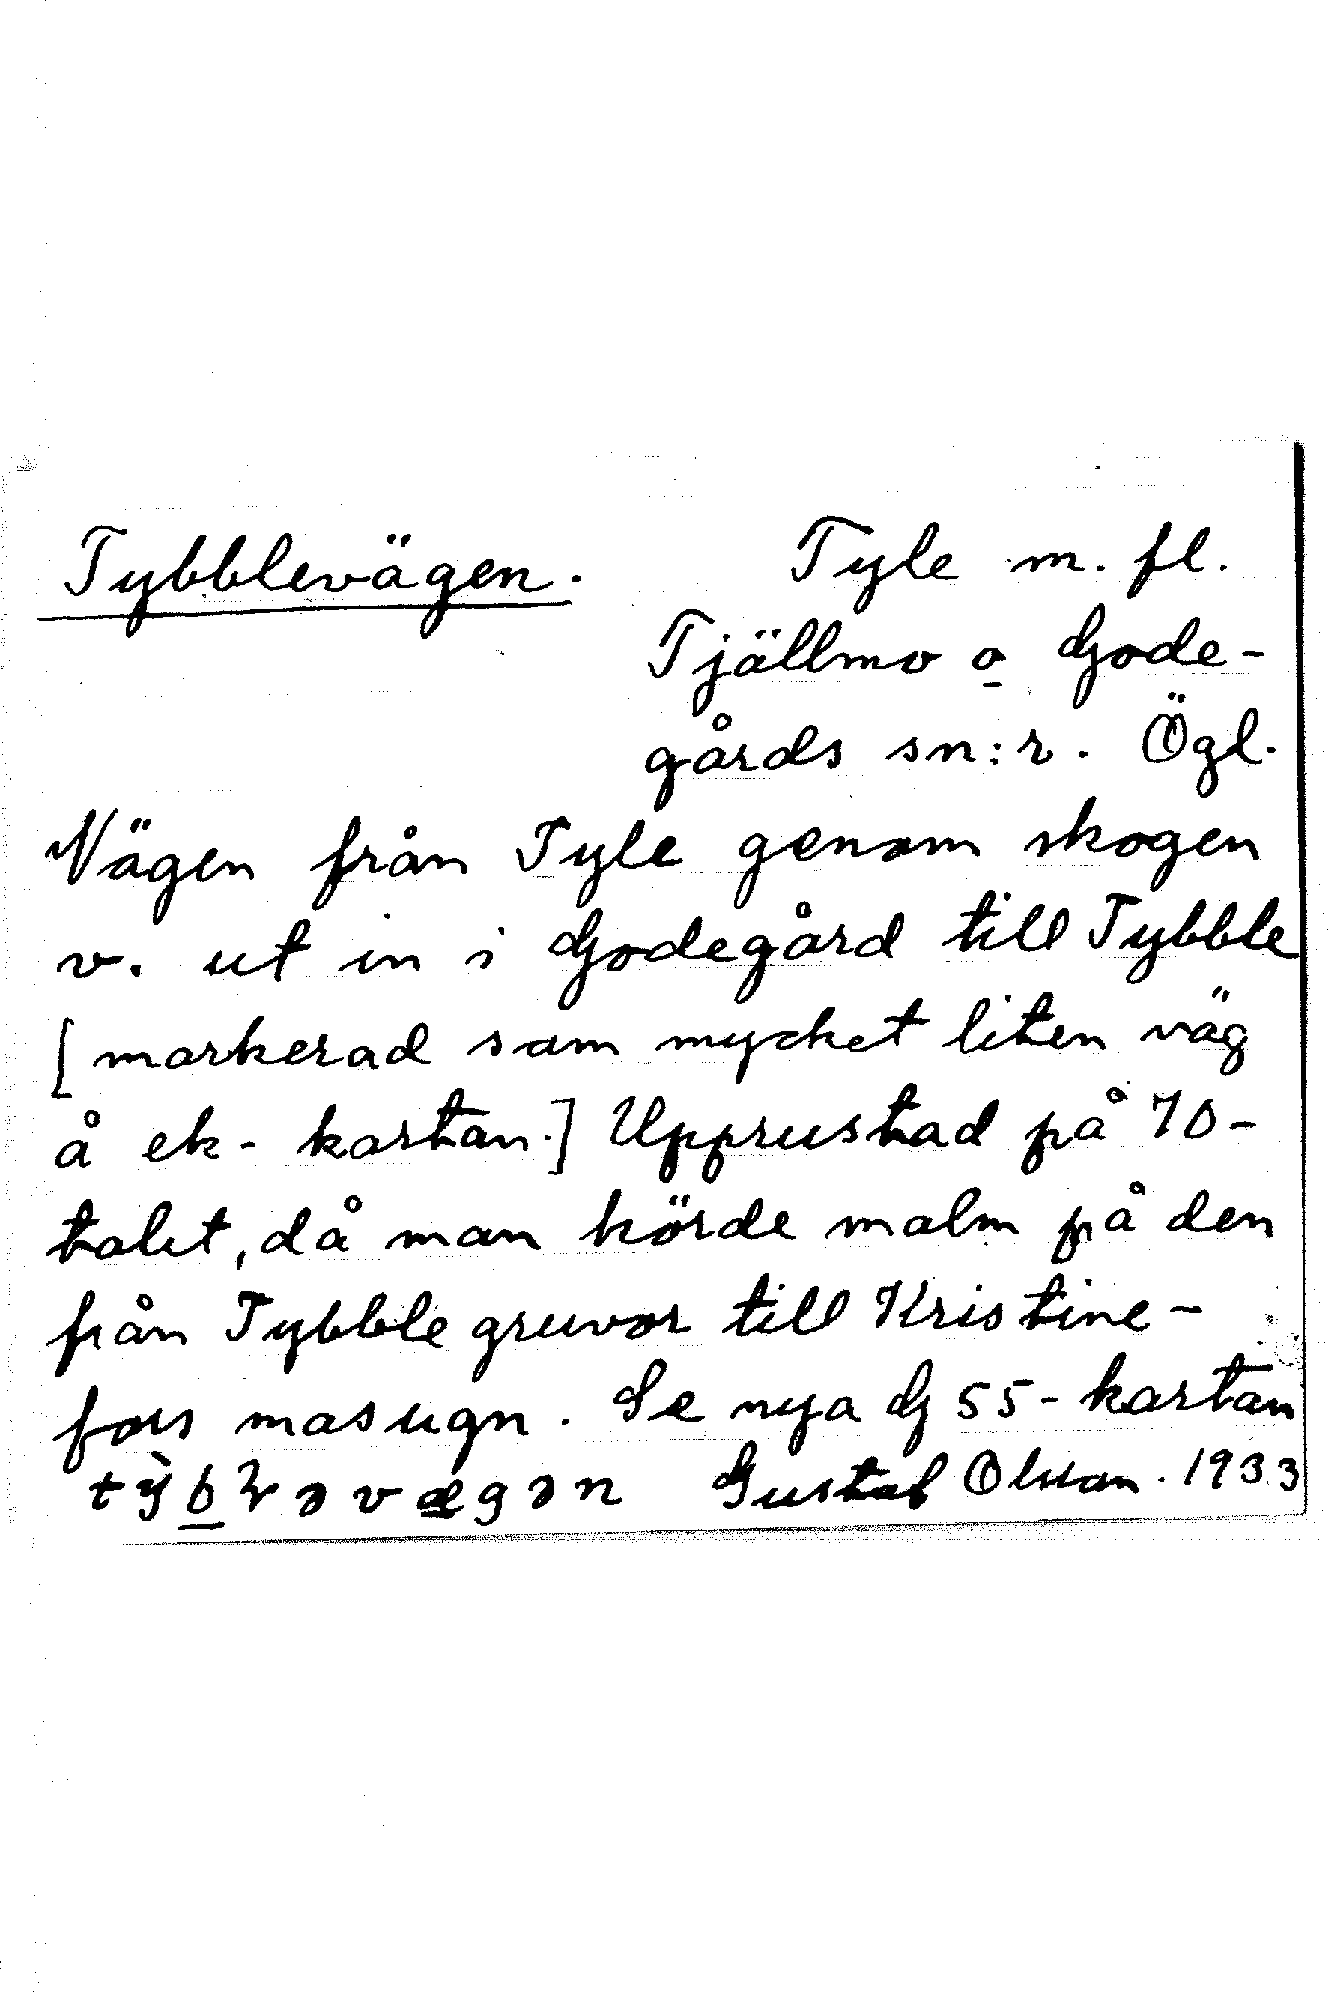 Tybblevägen. Tyle m. fl.
Tjällmo o Gode-
gårds sn:r. Ögl.
Vägen från Tyle genom skogen
v. ut in i Godegård till Tybble
[markerad som mycket liten väg
å ek-kartan.] Upprustad på 70-
talet, då man körde malm på den
från Tybble gruvor till Kristine-
fors masugn. Se nya G 55-kartan
Gustaf Olsson. 1933